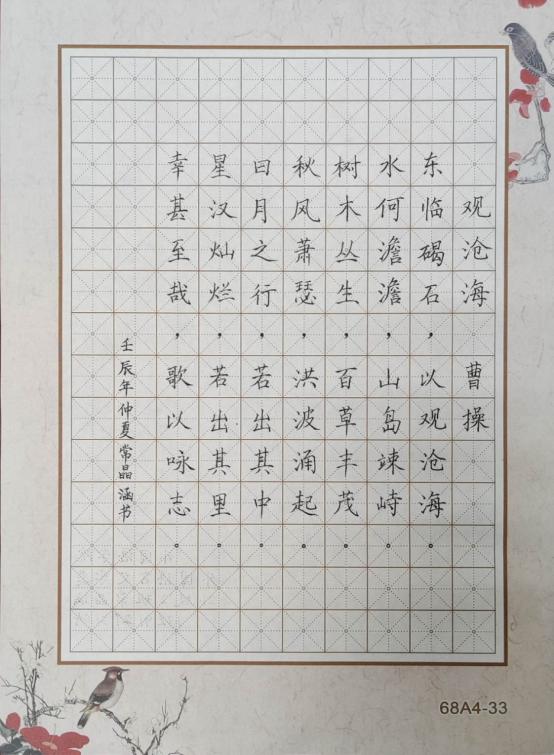 观沧海 曹操
东临碣石，以观沧海。
水何澹澹，山岛竦峙。
树木丛生，百草丰茂。
秋风萧瑟，洪波涌起。
日月之行，若出其中。
星汉灿烂，若出其里。
幸甚至哉，歌以咏志。
壬辰年仲夏常晶涵书
68A4-33